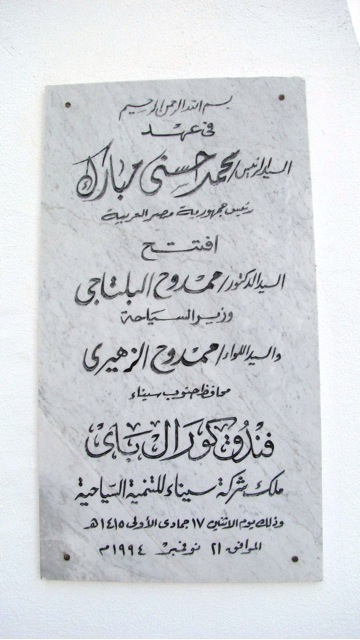 بسم الله الرحمن الرحيم
فى عهد
السيد الرئيس/ محمد حسنى مبارك
رئيس جمهورية مصر العربية
افتتح
السيد الدكتور/ ممدوح البلتاجى
وزير السياحة
والسيد اللواء/ ممدوح الزهيرى
محافظ جنوب سيناء
فندق كورال باى
ملك شركة سيناء للتنمية السياحية
وذلك يوم الاثنين ١٧ جمادى الأولى ١٤١٥هـ
الموافق ٢١ نوفمبر ١٩٩٤م